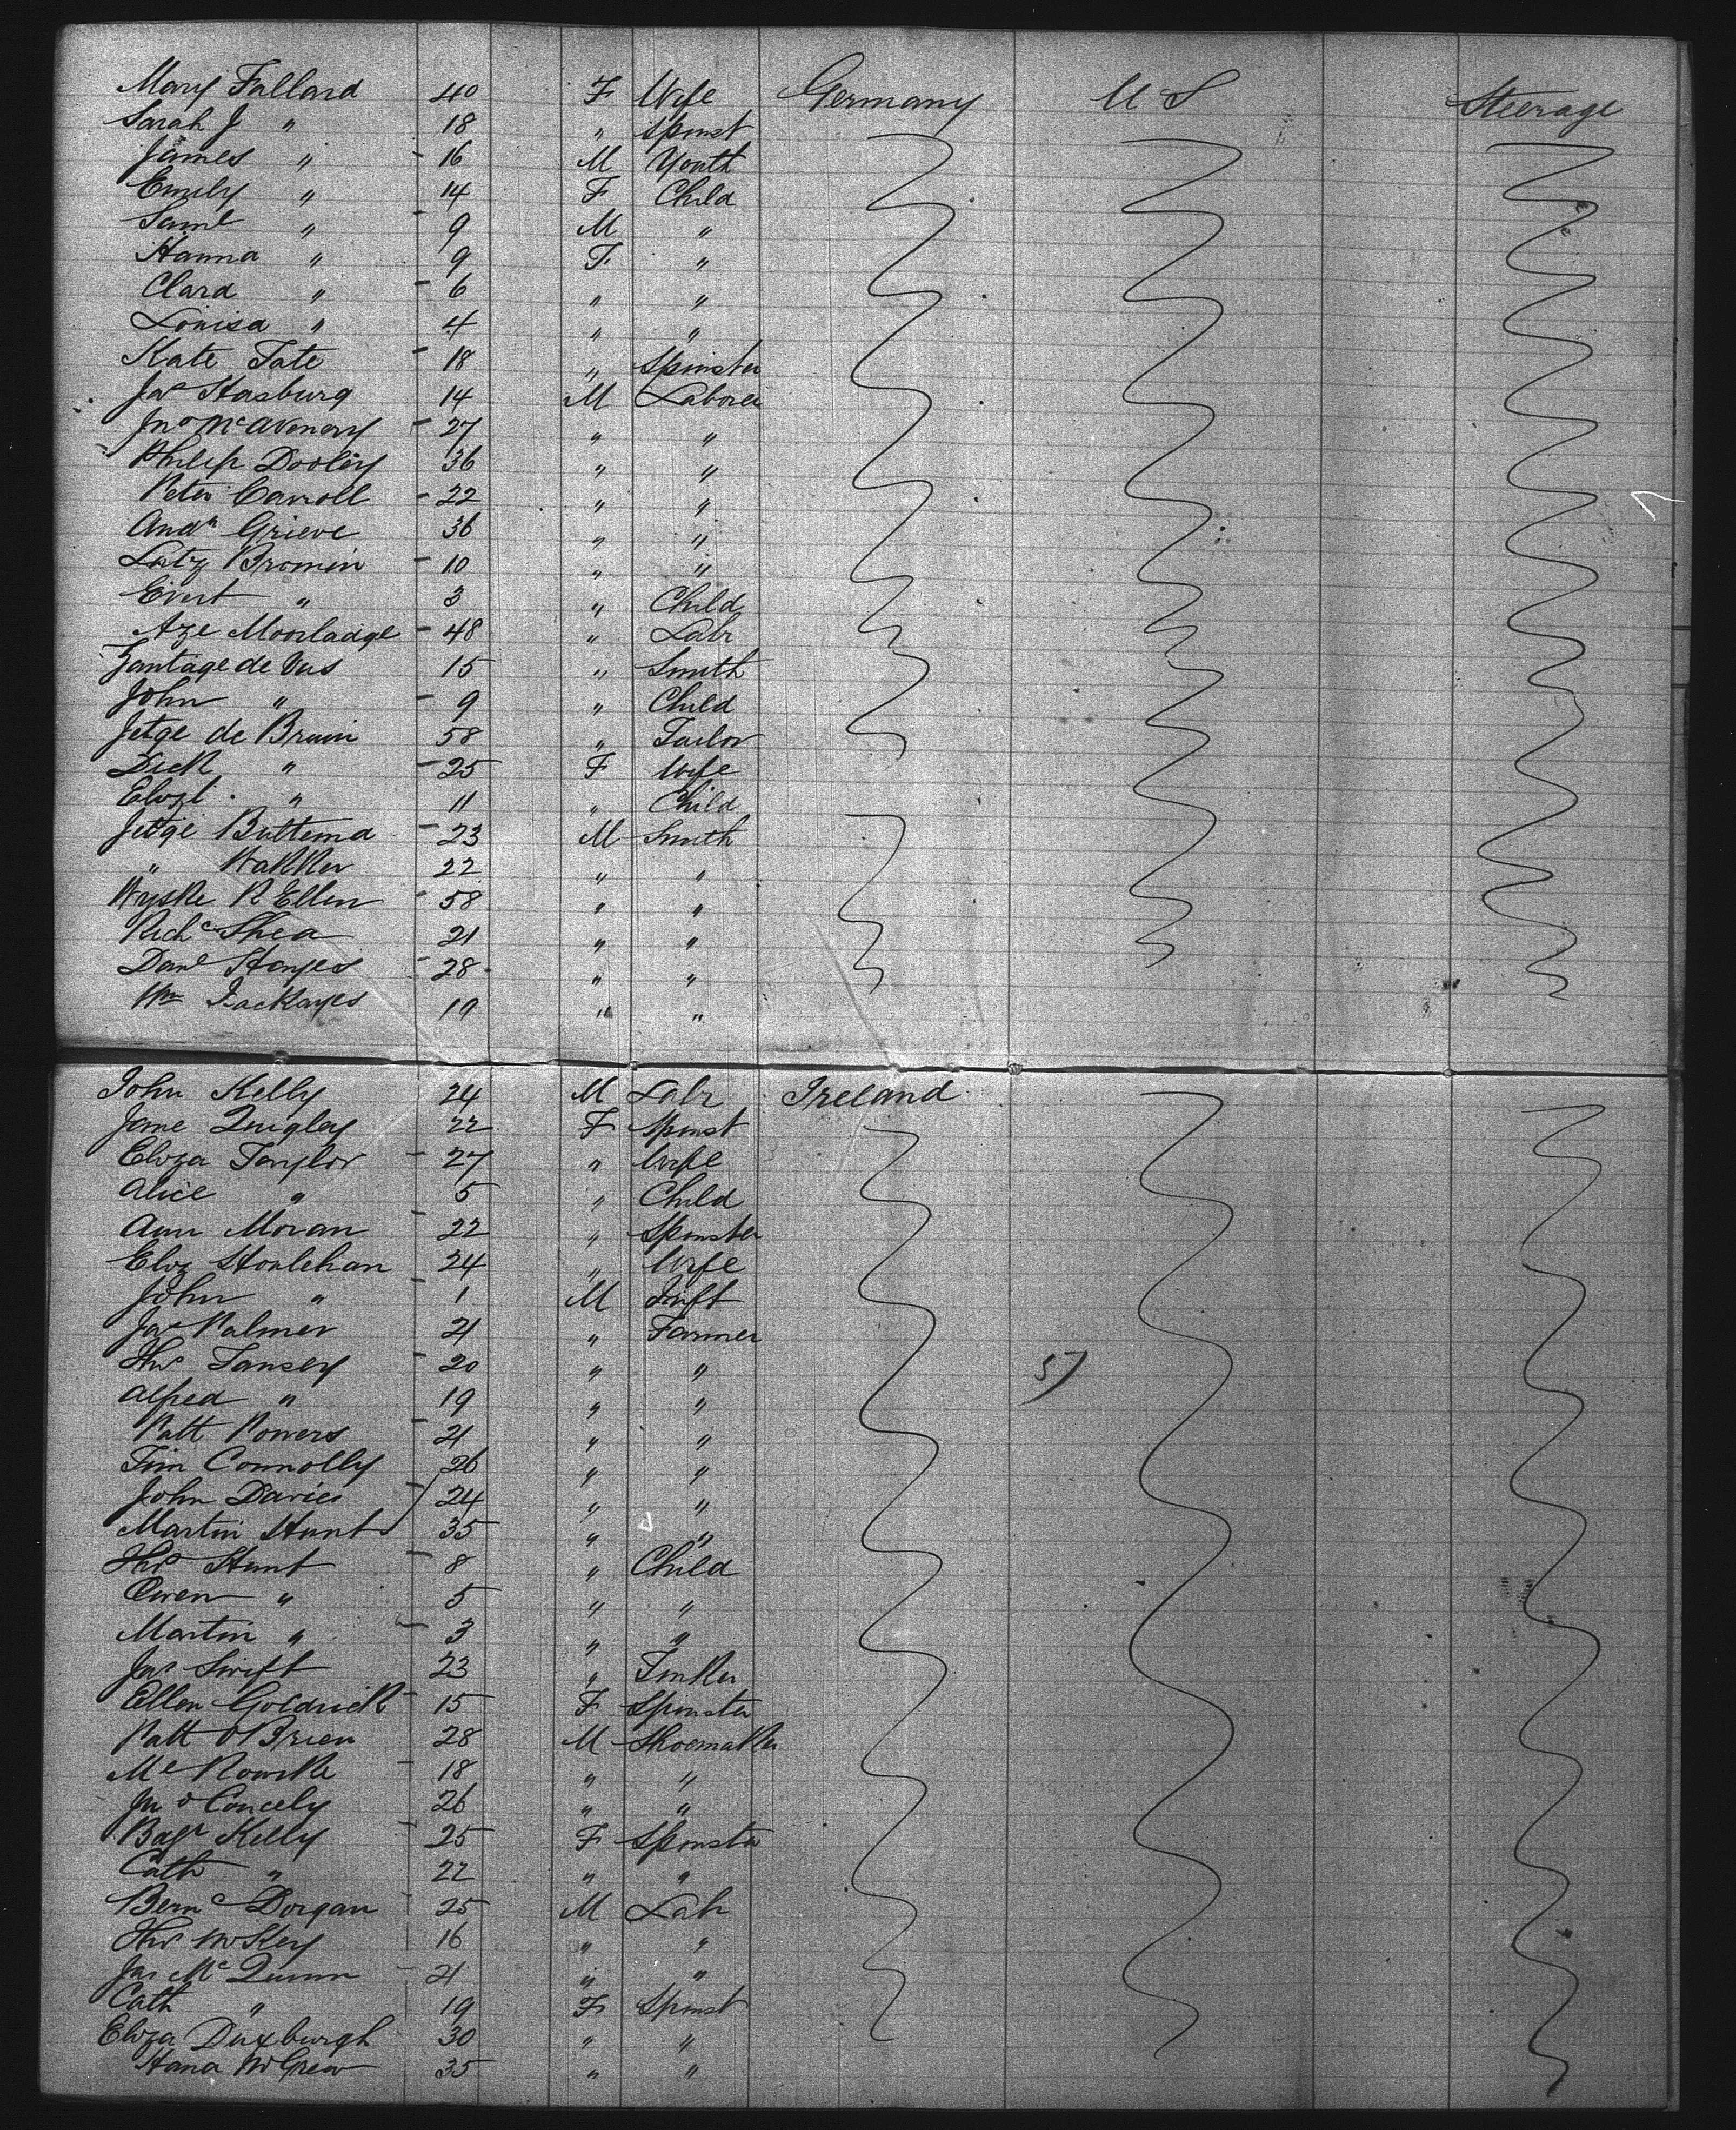 Mary Fallard 40 F Wife Germany U S Steerage
Sarah J " 18 " Spinst
James " 16 M Youth
Emily " 14 F Child
Saml " 9 M "
Hanna " 9 F "
Clara " 6 " "
Louisa " 4 " "
Kate Tate 18 " Spinster
Jas Hasburg 14 M Laborer
Jno McAvenery 27 " "
Philip Dooley 36 " "
Peter Carroll 22 " "
Andw Grieve 36 " "
Bromin 10 " "
Evert " 3 " Child
Aze Moorladge 48 " Labr
Zantage de Vus 15 " Smith
John " 9 " Child
Jetge de Bruin 58 " Tailor
Dick " 25 F Wife
" 11 " Child
Jetge Buttema 23 M Smith
" Wakker 22 " "
Wyske R Ellen 58 " "
Richd Shea 21 " "
Danl Hayes 28 " "
Wm 19 " "
John Kelly 24 M Labr Ireland
Jane Quigley 22 F Spinst
Eliza Taylor 27 " Wife
Alice " 5 " Child
Ann Moran 22 " Spinster
Eliz Houlehan 24 " Wife
John " 1 M Inft
Jas Palmer 21 " Farmer
Thos Tansey 20 " " 57
Alfred " 19 " "
Patt Powers 21 " "
Tim Connolly 26 " "
John Davies 24 " "
Martin Hunt 35 " "
Thos Hunt 8 " Child
Owen " 5 " "
Martin " 3 " "
Jas Swift 23 " Tinker
Ellen Goldrick 15 F Spinster
Patt OBrien 28 M Shoemaker
Ml Rourke 18 " "
Jno Concely 26 " "
Kelly 25 F Spinster
Cath " 22 " "
Bernd Dorgan 25 M Labr
Thos McKey 16 " "
Jas McQuinn 21 " "
Cath " 19 F Spinst
Eliza Duxburgh 30 " "
Hana McGrew 35 " "